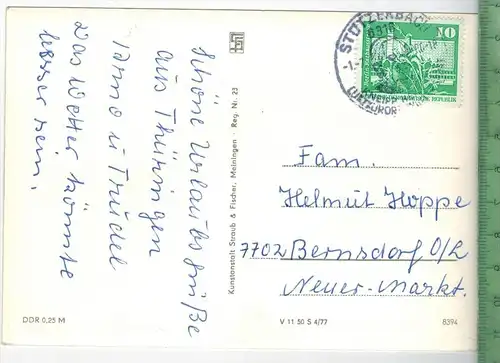 Schöne Urlaubsgrüße
aus Thüringen
u Trudel
Das Wetter könnte
besser sein.
DDR 0,25 M
Kunstanstalt Straub & Fischer, Meiningen · Reg. Nr. 23
STÜTZERBACH
6316
10
Fam.
Helmut Hoppe
7702 Bernsdorf O/L
Neuer-Markt.
V 11 50 S 4/77
8394